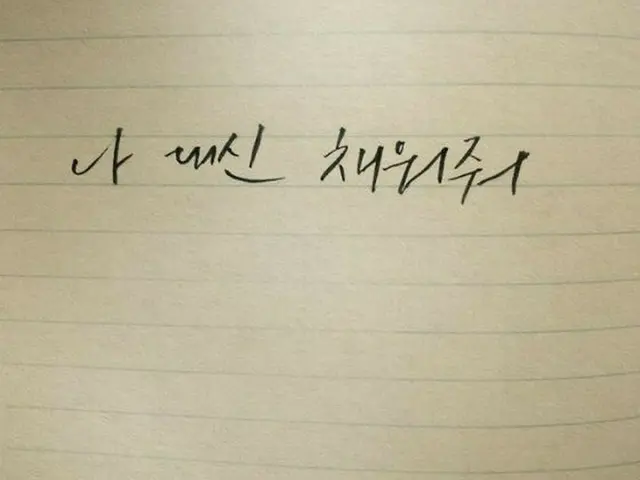 나 대신 채워줘